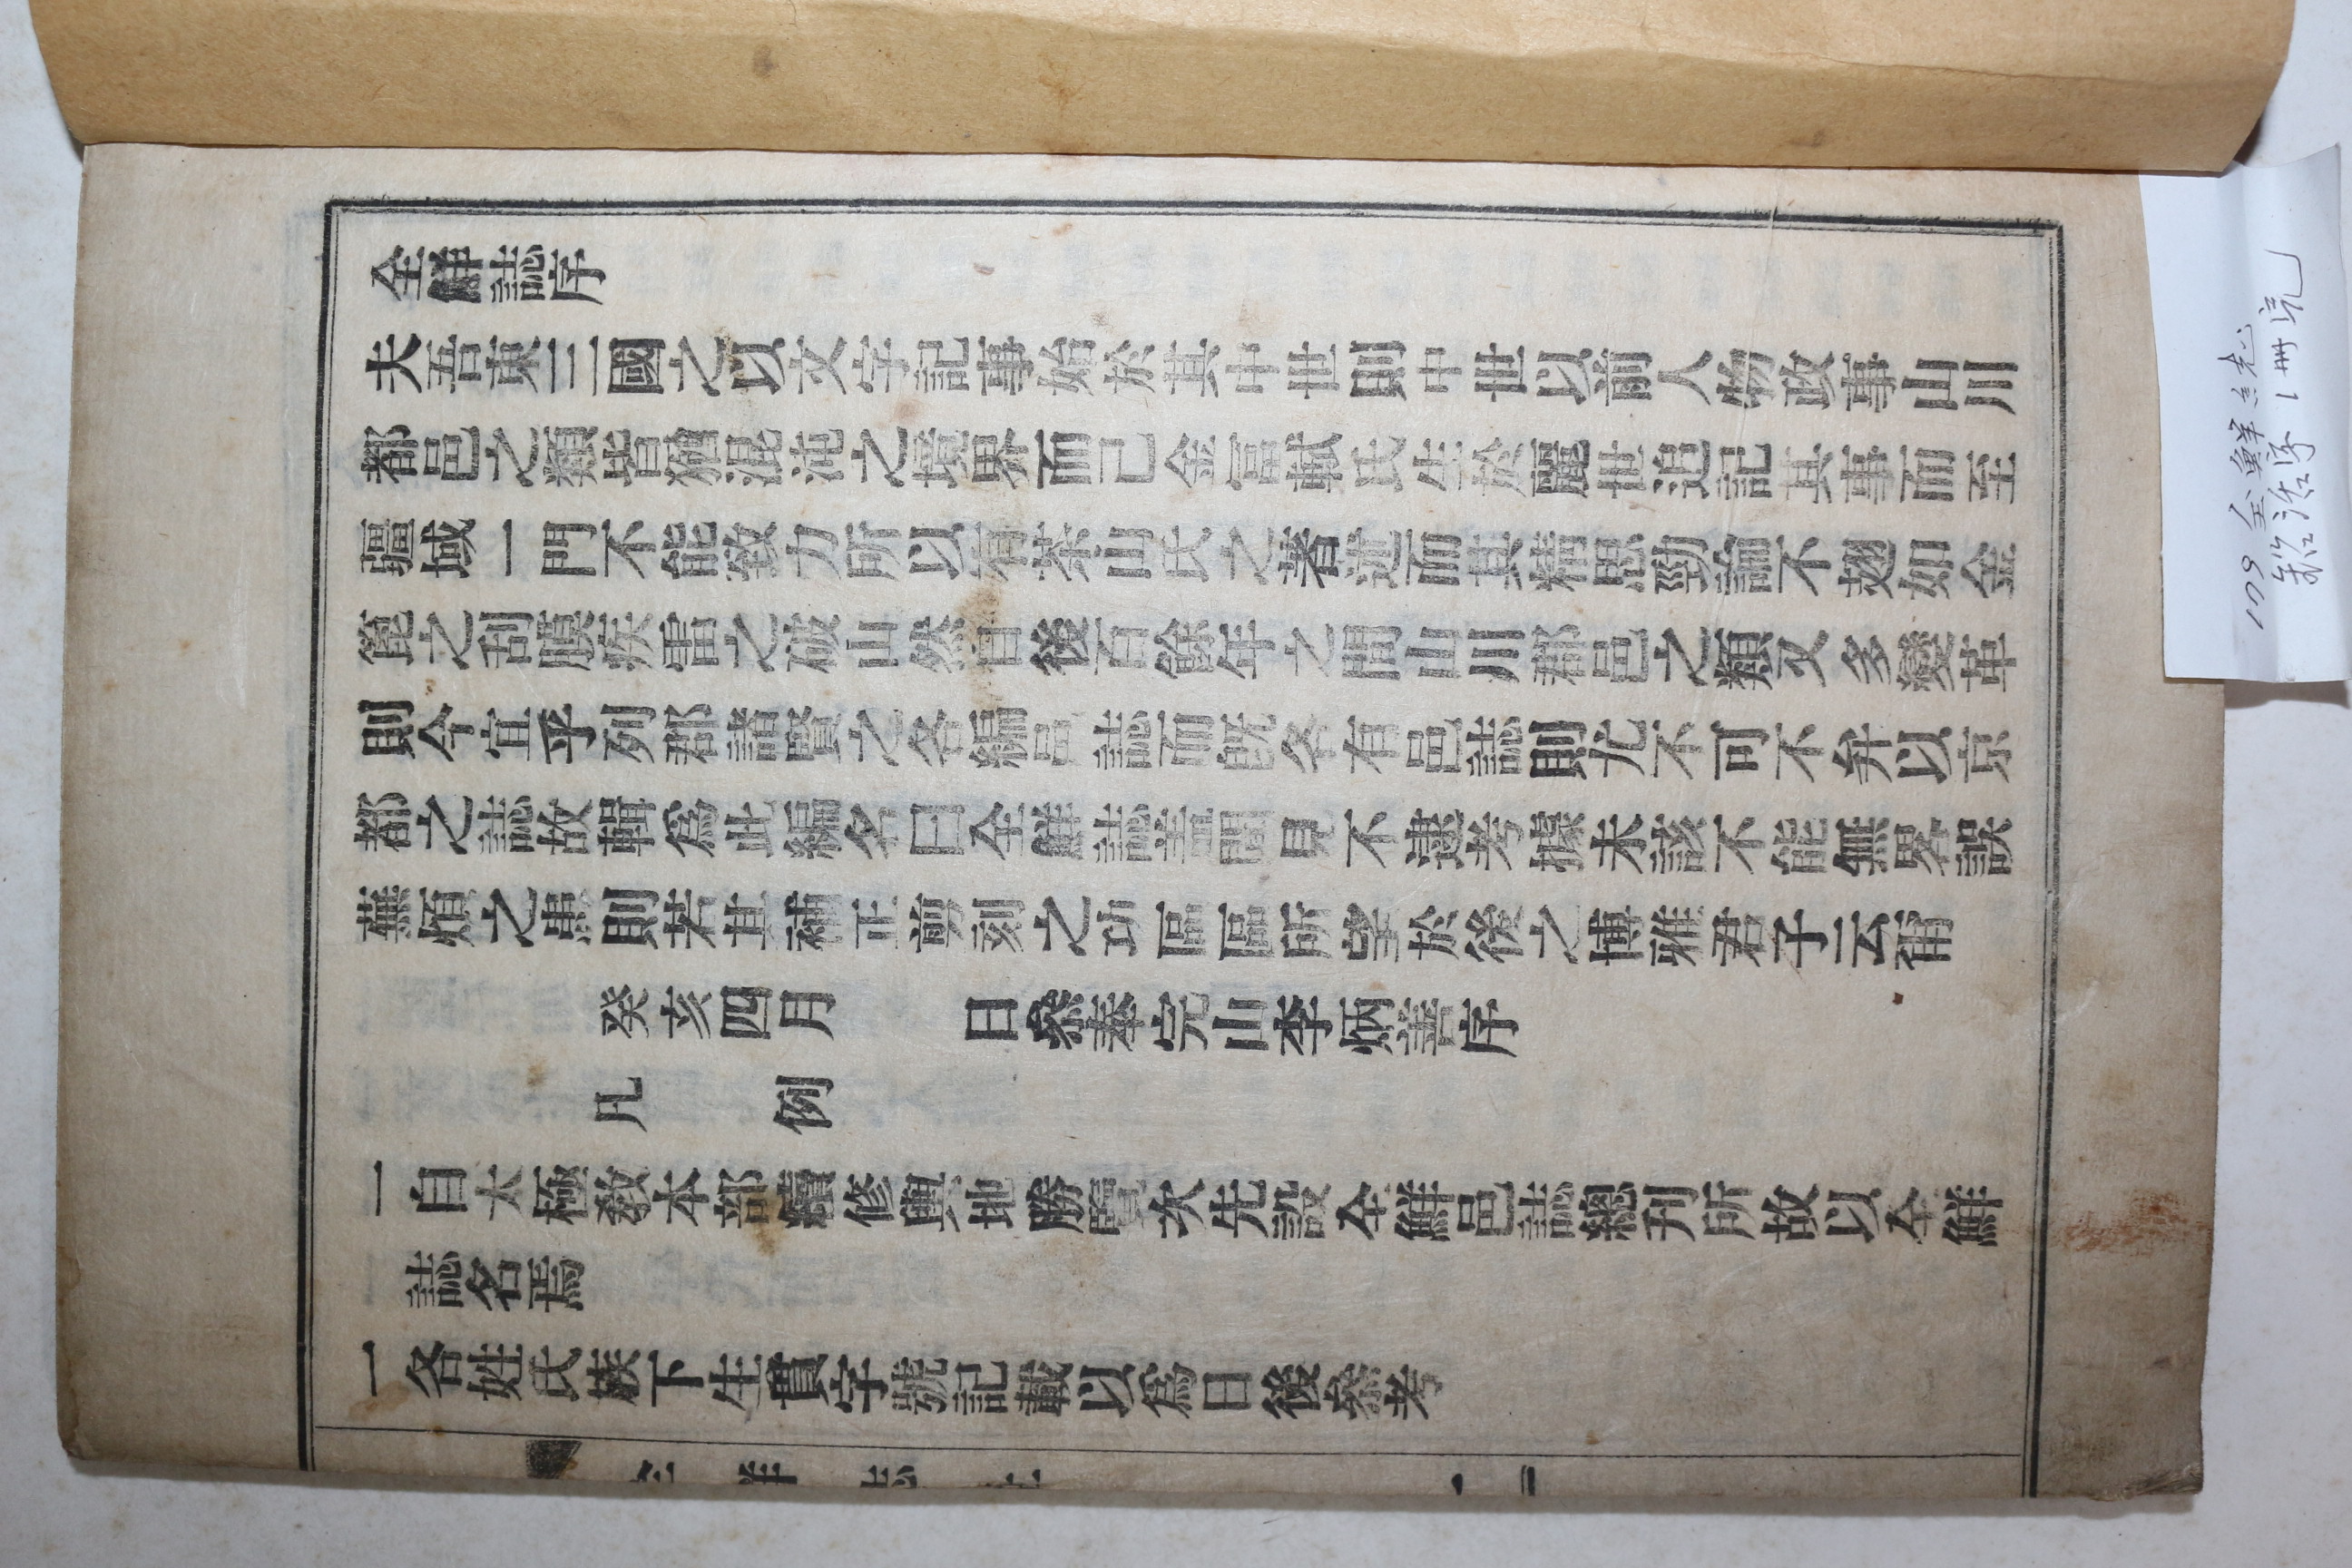 全鮮誌序
夫吾東三國之以文字記事始於其中世則中世以前人物政事山川
都邑之類皆猶混沌之境界而己金冨軾氏生於麗世追記其事而至
疆域一門不能致力所以有茶山氏之著述而其精思勁論不翅如金
篦之刮膜疾雷之破山然自後百餘年之間山川郡邑之類又多變革
則今宜乎列郡諸賢之各編邑誌而旣各有邑誌則尤不可不弁以京
都之誌故輯爲此編名曰全鮮誌盖聞見不逮考據未該不能無畧誤
蕪煩之患則若其補正剪刻之功區區所望於後之博雅君子云爾
癸亥四月 日叅奉完山李炳善序
凡 例
一自太極敎本部續修輿地勝覽次先設全鮮邑誌總刊所故以全鮮
誌名焉
一各姓氏族下生貫字號記載以爲日後叅考
全鮮誌 一
179 全鮮誌
鉛活字 1冊完